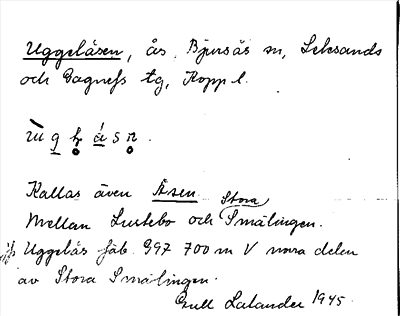 Uggelåsen, ås. Bjursås sn, Leksands
och Gagnefs tg, Kopp l.
Kallas även Åsen.
Mellan Lustebo och Stora Smålingen.
jfr Uggelås fäb. 997 700 m V norra delen
av Stora Smålingen.
Gull Lalander 1945.